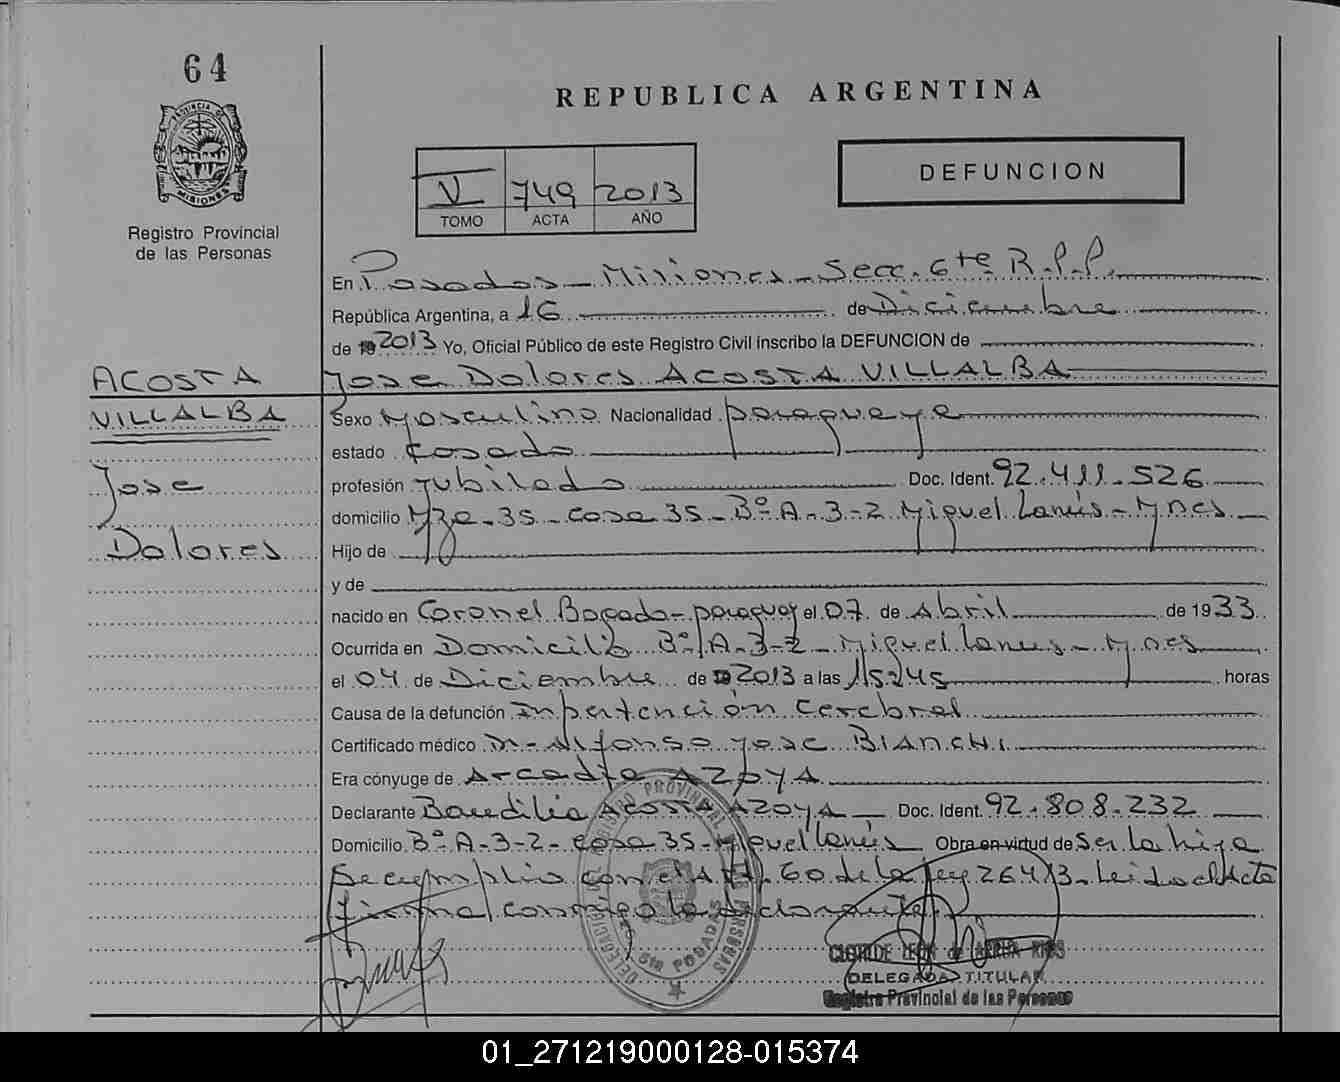 64
REPUBLICA ARGENTINA
PROVINCIA DE
MISIONES
Registro Provincial
de las Personas
DEFUNCION
V 749 2013
TOMO ACTA AÑO
En Posadas - Misiones - Secc. 6te R.P.P.
República Argentina, a 16 de Diciembre
de 2013 Yo, Oficial Público de este Registro Civil inscribo la DEFUNCION de
Jose Dolores ACOSTA VILLALBA
ACOSTA
VILLALBA
Jose
Dolores
Sexo Masculino Nacionalidad paraguaya
estado Casado
profesión Jubilado Doc. Ident. 92.411.526
domicilio Mza - 35 - casa 35 - Bº A-3-2 Miguel Lanús - Mnes
Hijo de
y de
nacido en Coronel Bogado - paraguay el 07 de Abril de 1933
Ocurrida en Domicilio Bº A-3-2 - Miguel Lanus - Mnes
el 04 de Diciembre de 2013 a las 15:45 horas
Causa de la defunción Cerebral
Certificado médico Dr. Alfonso Jose BIANCHI
Era cónyuge de Arcadia AZOYA
Declarante Baudilia ACOSTA AZOYA Doc. Ident. 92.808.232
Domicilio Bº A-3-2 - Casa 35 - Miguel Lanús Obra en virtud de Ser la hija
Se cumplio con el Art. 60 de la ley 26413 - Leida el Acta
firma conmigo la declarante
DELEGACION DEL REGISTRO PROVINCIAL DE LAS PERSONAS
6ta POSADAS
CLOTILDE LEON de RIOS
DELEGADA TITULAR
Registro Provincial de las Personas
01_271219000128-015374